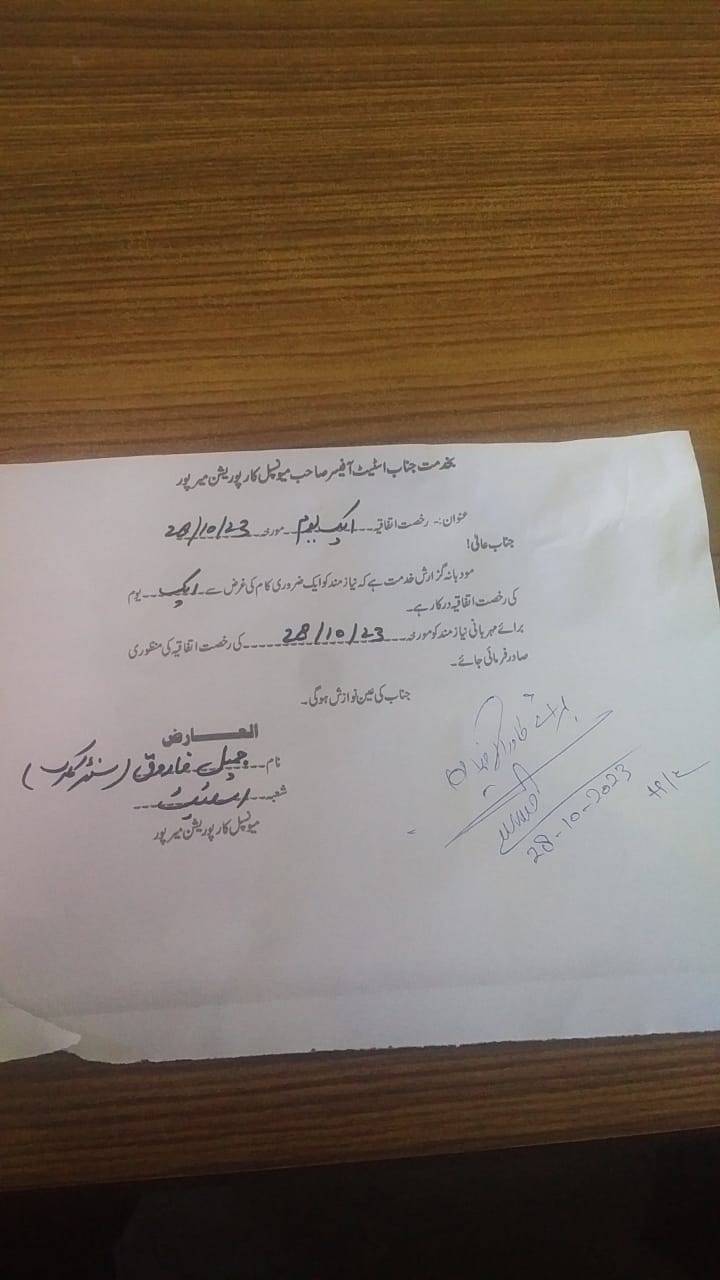 بخدمت جناب اسٹیٹ آفیسر صاحب میونسپل کارپوریشن میرپور
عنوان:۔ رخصت اتفاقیہ ایک یوم مورخہ 28/10/23
جناب عالی!
مودبانہ گزارش خدمت ہے کہ نیاز مند کو ایک ضروری کام کی غرض سے ایک یوم
کی رخصت اتفاقیہ درکار ہے۔
برائے مہربانی نیاز مند کو مورخہ 28/10/23 کی رخصت اتفاقیہ کی منظوری
صادر فرمائی جائے۔
جناب کی عین نوازش ہوگی۔
العارض
نام جمیل فاروق (سنئر کلرک)
شعبہ اسٹیٹ
میونسپل کارپوریشن میرپور
برائے
28-10-2023